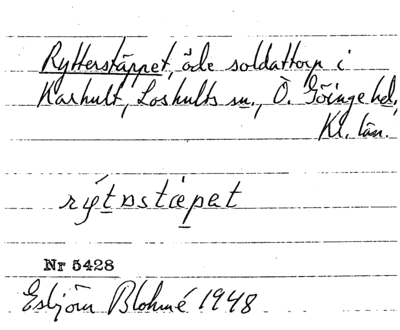 Rytterstäppet, öde soldattorp i
Karhult, Loshults sn., Ö. Göinge hd.,
Kr. län.
rýtɒstɛpɐt
Nr 5428
Esbjörn Blohmé 1948